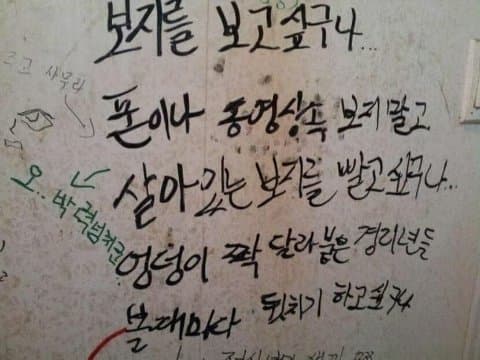 보지를 보고싶구나...
크고 사무리
폰이나 동영상속 보지 말고
살아있는 보지를 빨고싶구나...
오.. 박력넘쳐군
엉덩이 짝 달라붙은 경리년들
볼때마다 뒤치기 하고싶구나